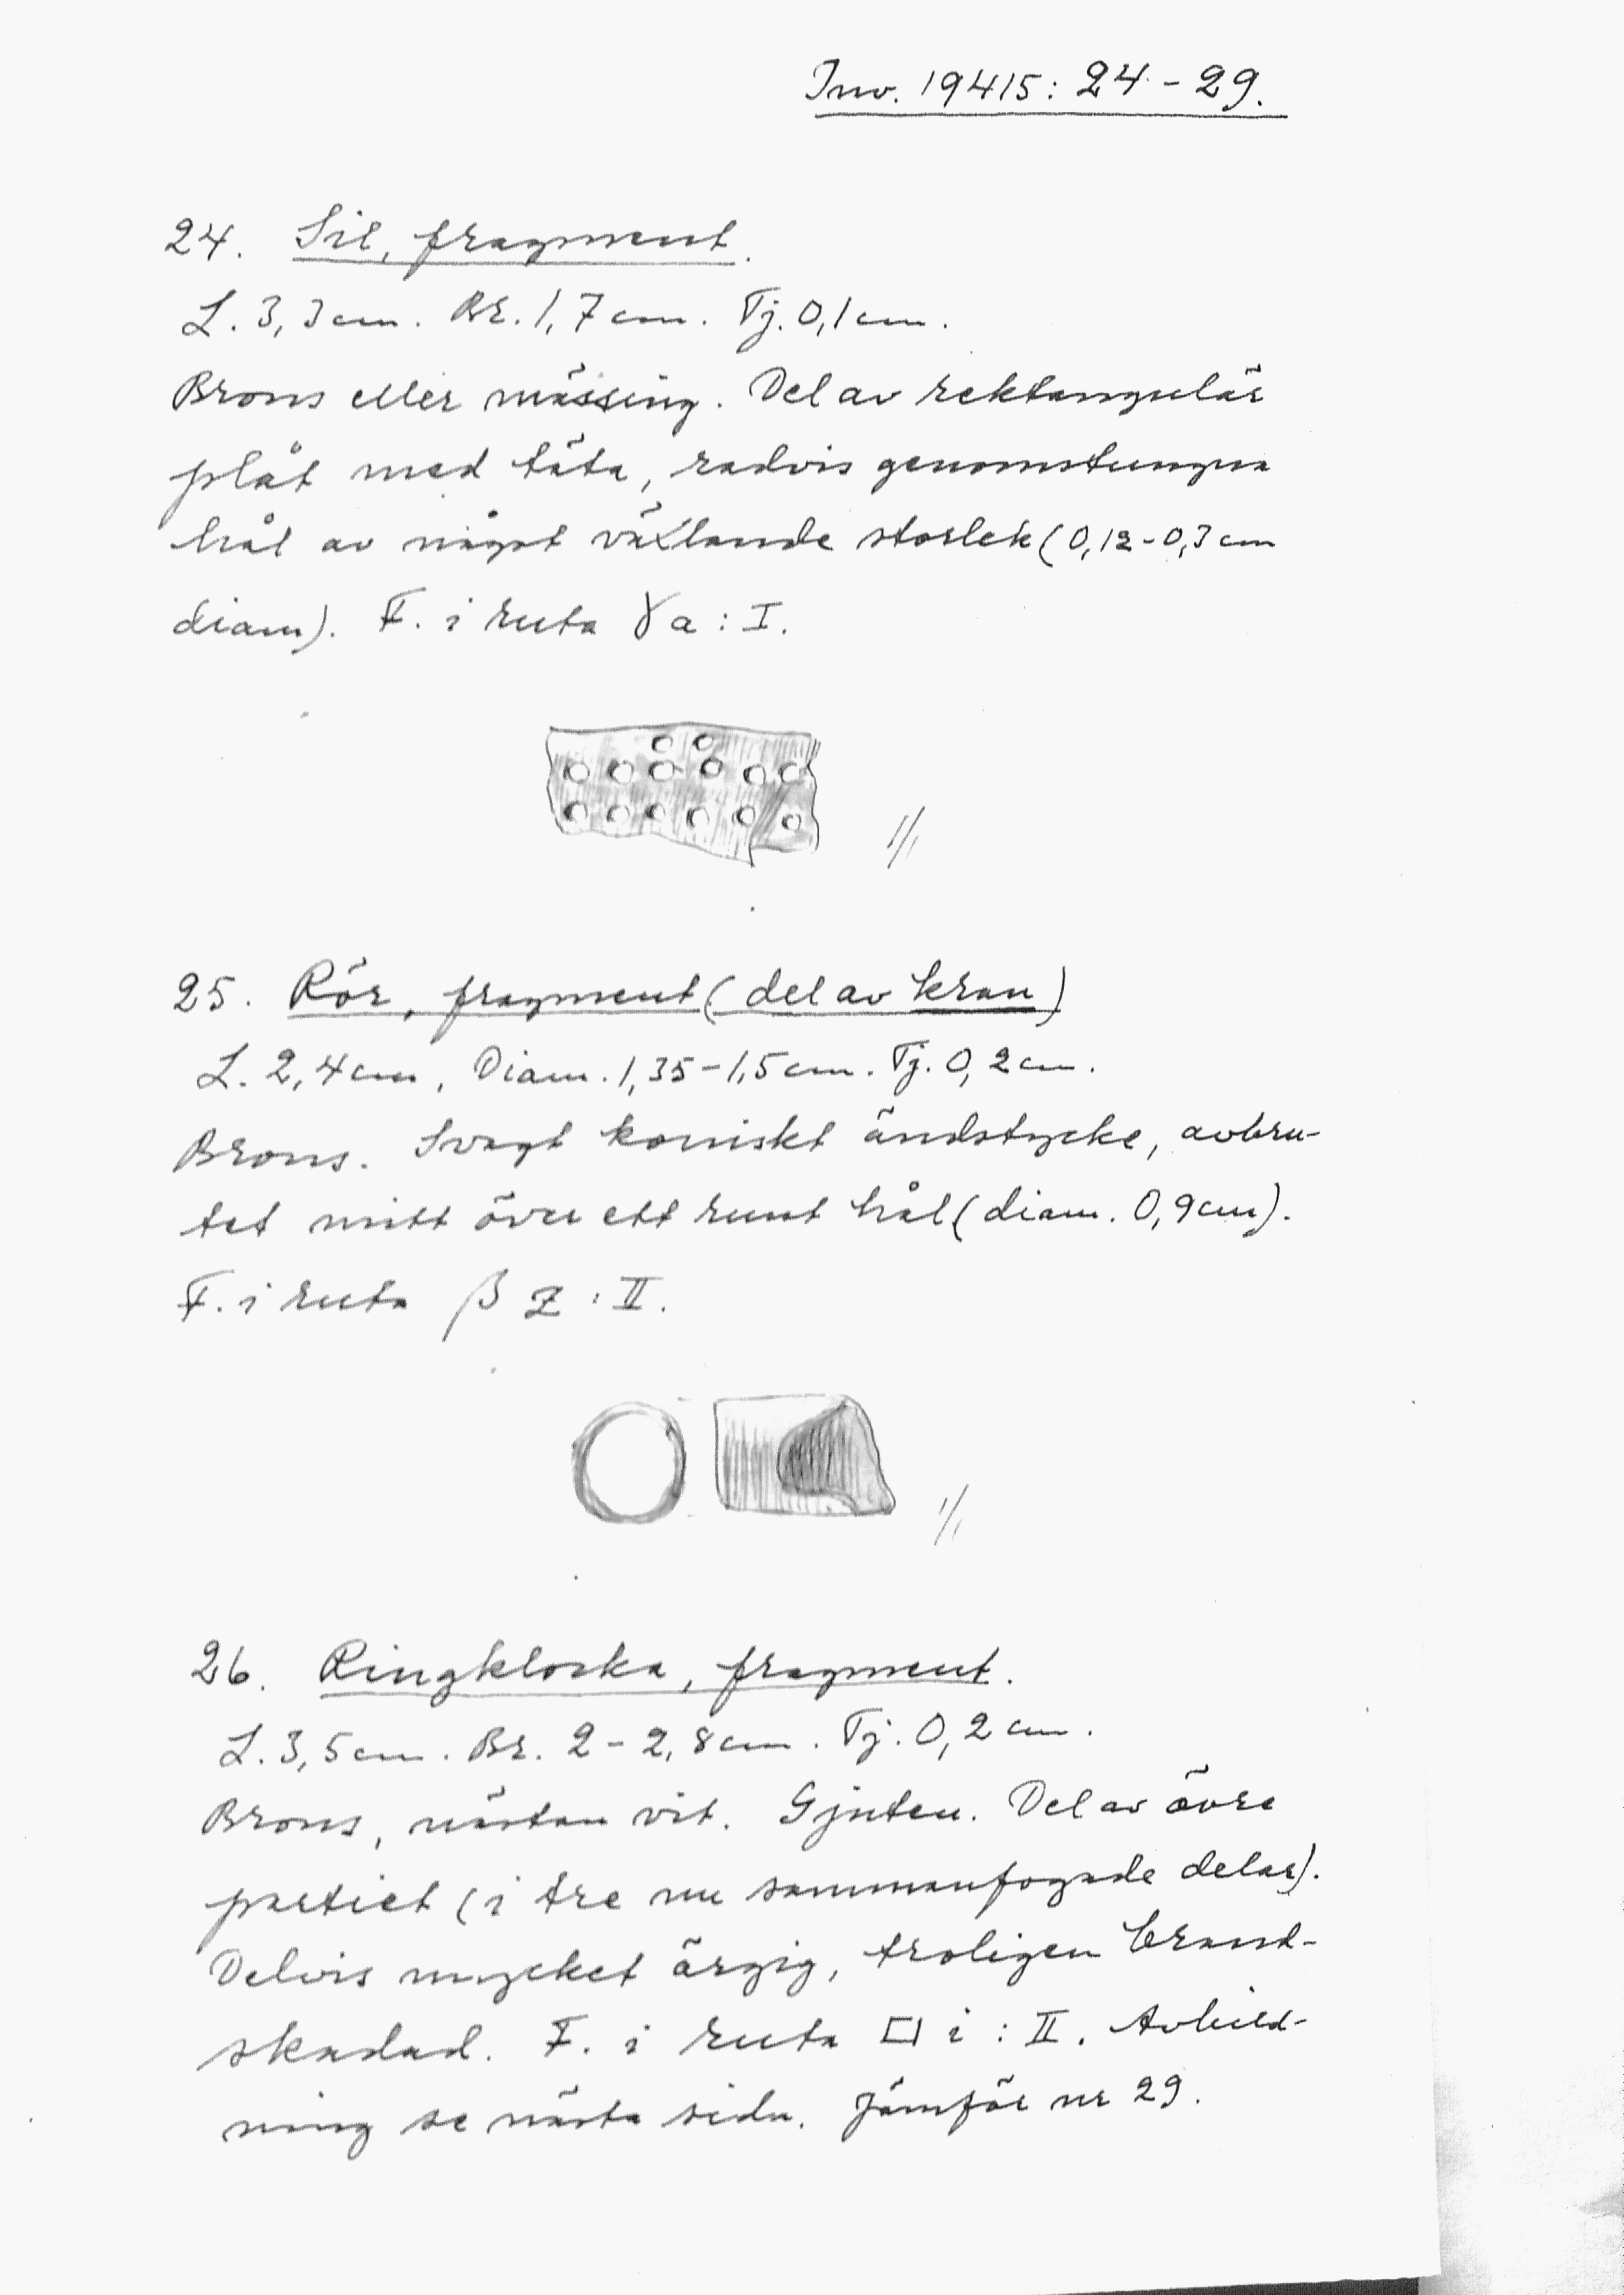 Inv. 19415: 24-29.
24. Sil, fragment.
L. 3,3 cm. Br. 1,7 cm. Tj. 0,1 cm.
Brons eller mässing. Del av rektangulär
plåt med täta, radvis genomstungna
hål av något växlande storlek (0,12-0,3 cm
diam). F. i ruta γ a : I.
1/1
25. Rör, fragment (del av kran)
L. 2,4 cm, Diam. 1,35-1,5 cm. Tj. 0,2 cm.
Brons. Svagt koniskt ändstycke, avbru-
tet mitt över ett runt hål (diam. 0,9 cm).
F. i ruta β z : II.
1/1
26. Ringklocka, fragment.
L. 3,5 cm. Br. 2-2,8 cm. Tj. 0,2 cm.
Brons, nästan vit. Gjuten. Del av övre
partiet (i tre nu sammanfogade delar).
Delvis mycket ärgig, troligen brand-
skadad. F. i ruta □ i : II. Avbild-
ning se nästa sida. Jämför nr 29.